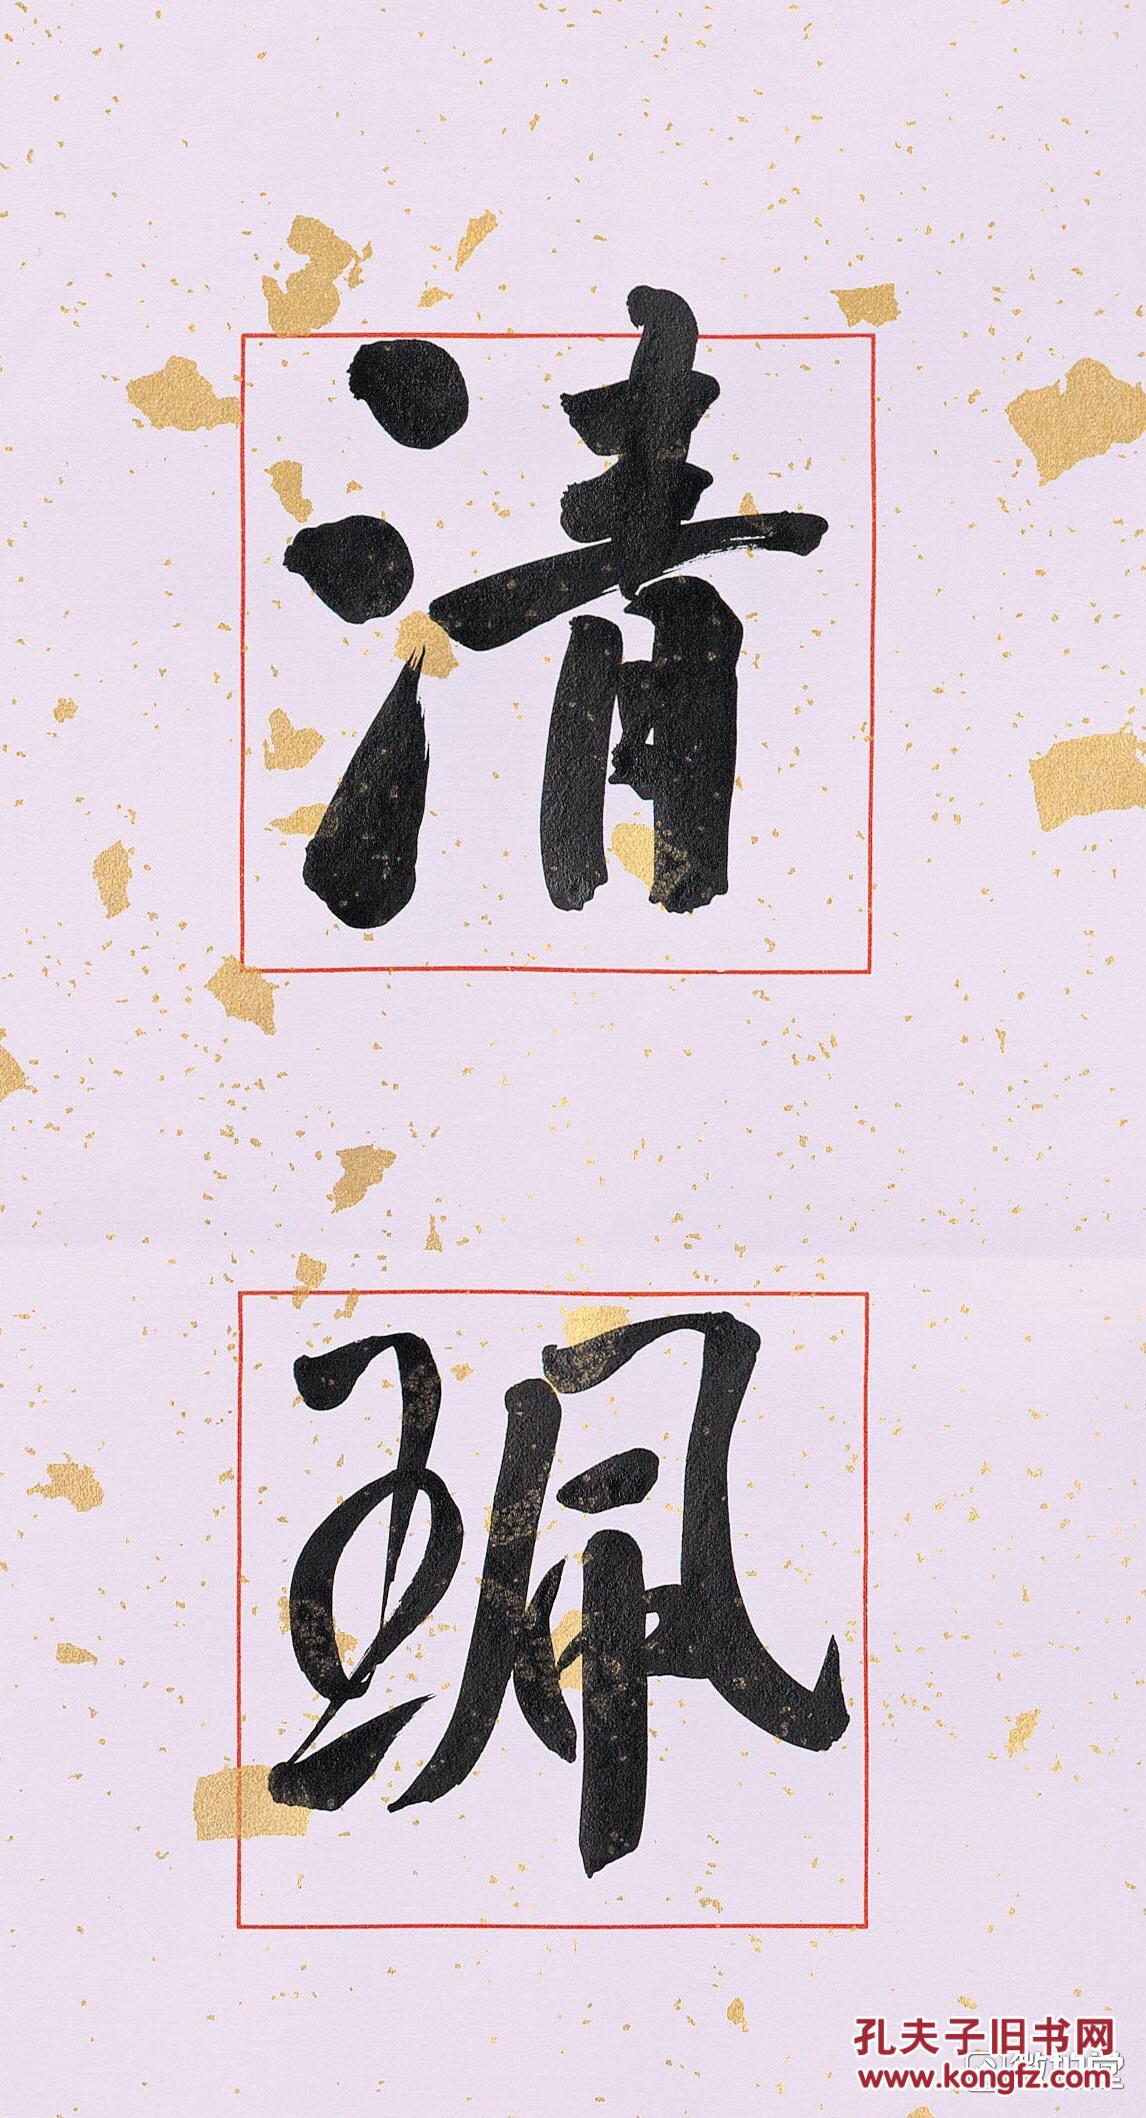 清
珮
孔夫子旧书网
www.kongfz.com